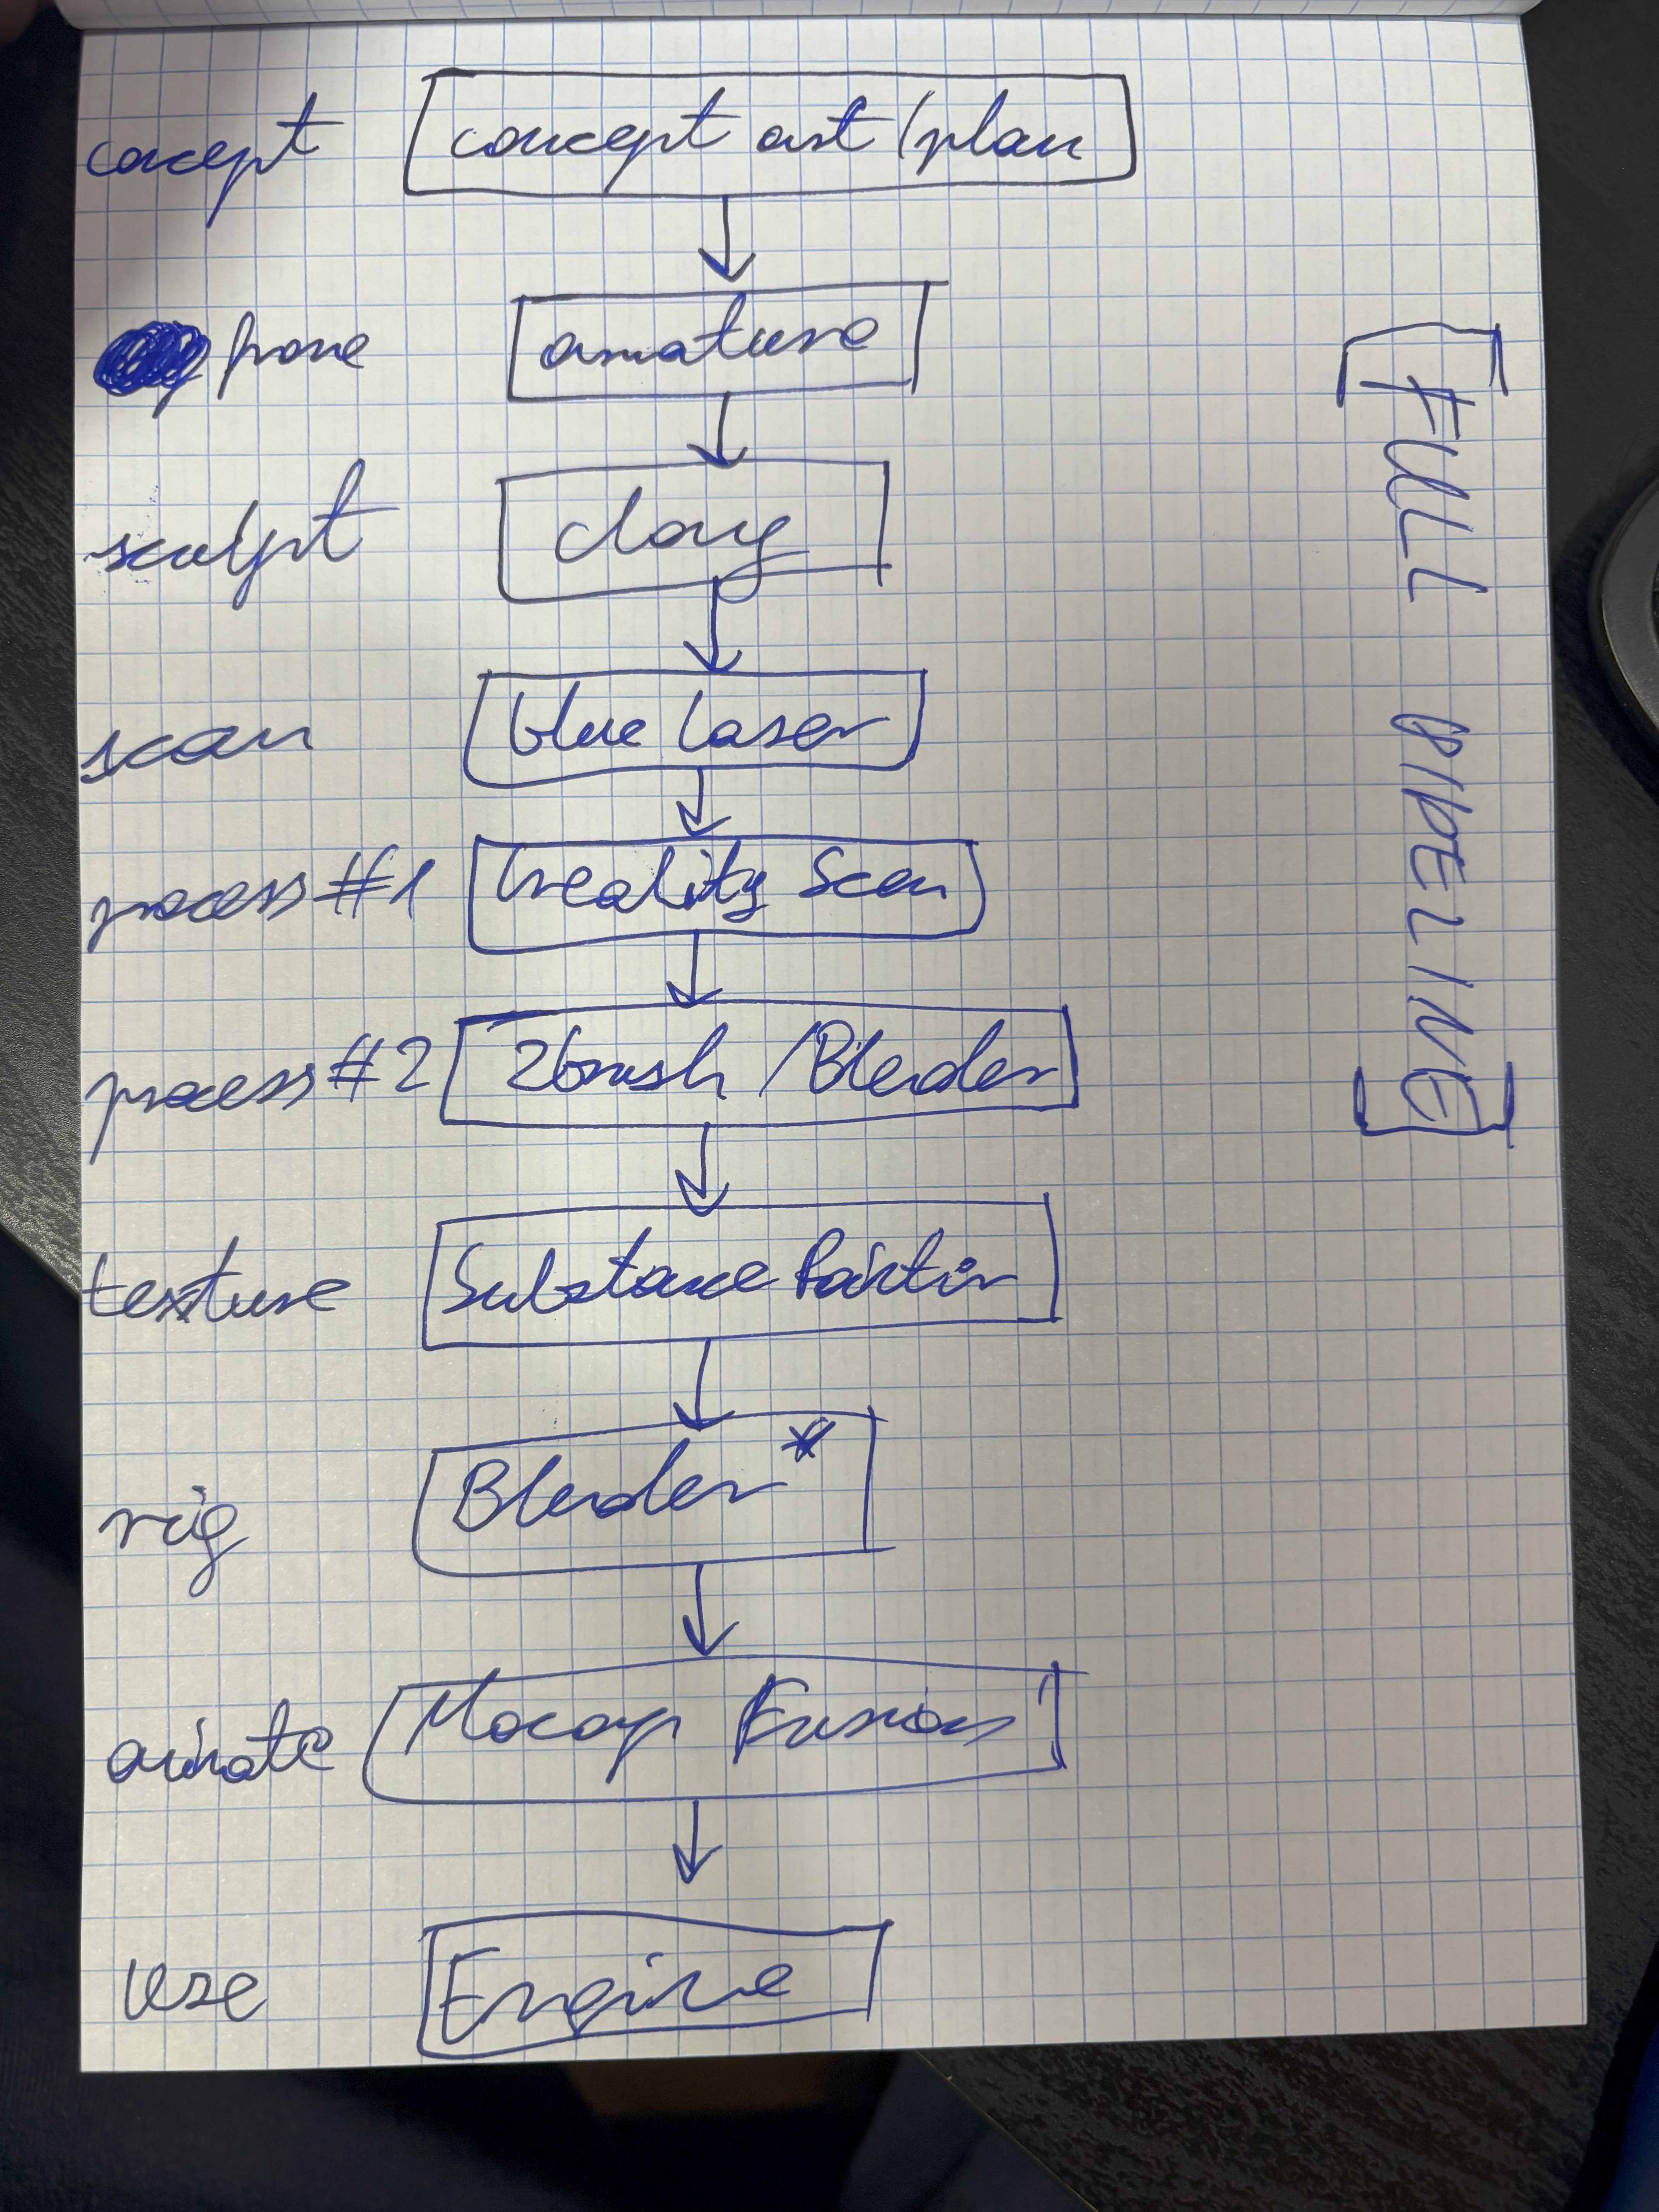 concept concept art/plan
armature
sculpt clay
scan blue laser
process #1 Creality Scan
process #2 Zbrush/Blender
texture Substance Painter
rig Blender*
animate Mocap Fusion
use Engine
FULL PIPELINE